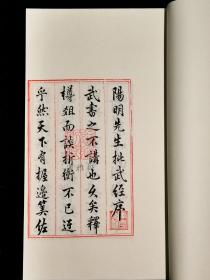 陽明先生批武经序
武書之不講也久矣釋
樽俎而談折衝不已迂
乎然天下有握邊筭佐